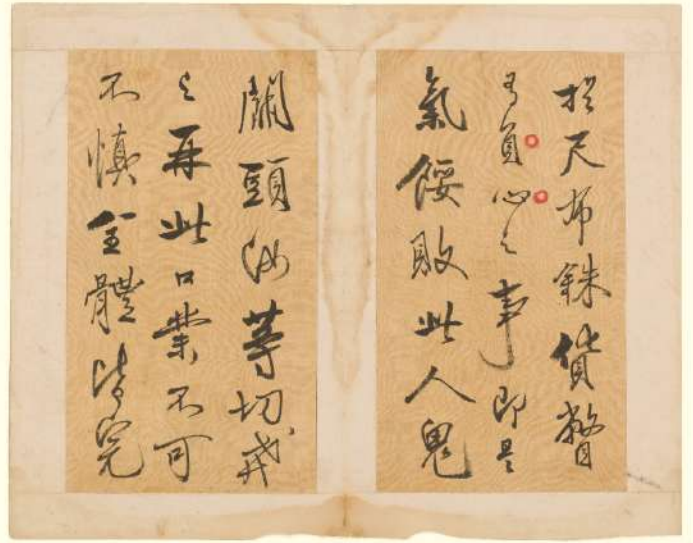 於尺布銖貨瞥
有負心之事即是
氣餒敗此人鬼
關頭汝等切戒
之再此口業不可
不慎全體皆完